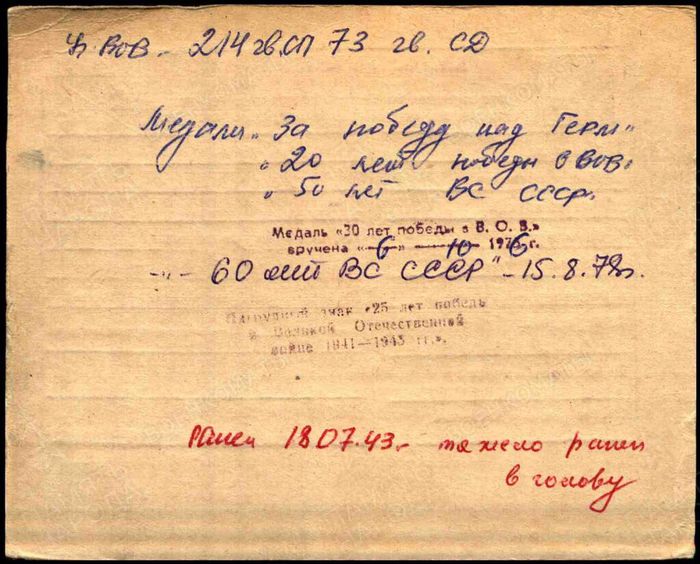 У. ВОВ - 214 гв. СП 73 гв. СД
Медали „ За победу над Герм "
„ 20 лет победы в ВОВ "
„ 50 лет ВС СССР.
Медаль «30 лет победы в В. О. В.»
вручена « 6 » 10 1976 г.
- " - 60 лет ВС СССР " - 15.8.79г.
Нагрудный знак «25 лет победы
в Великой Отечественной
войне 1941—1945 гг.».
Ранен 18 07.43.- тяжело ранен
в голову